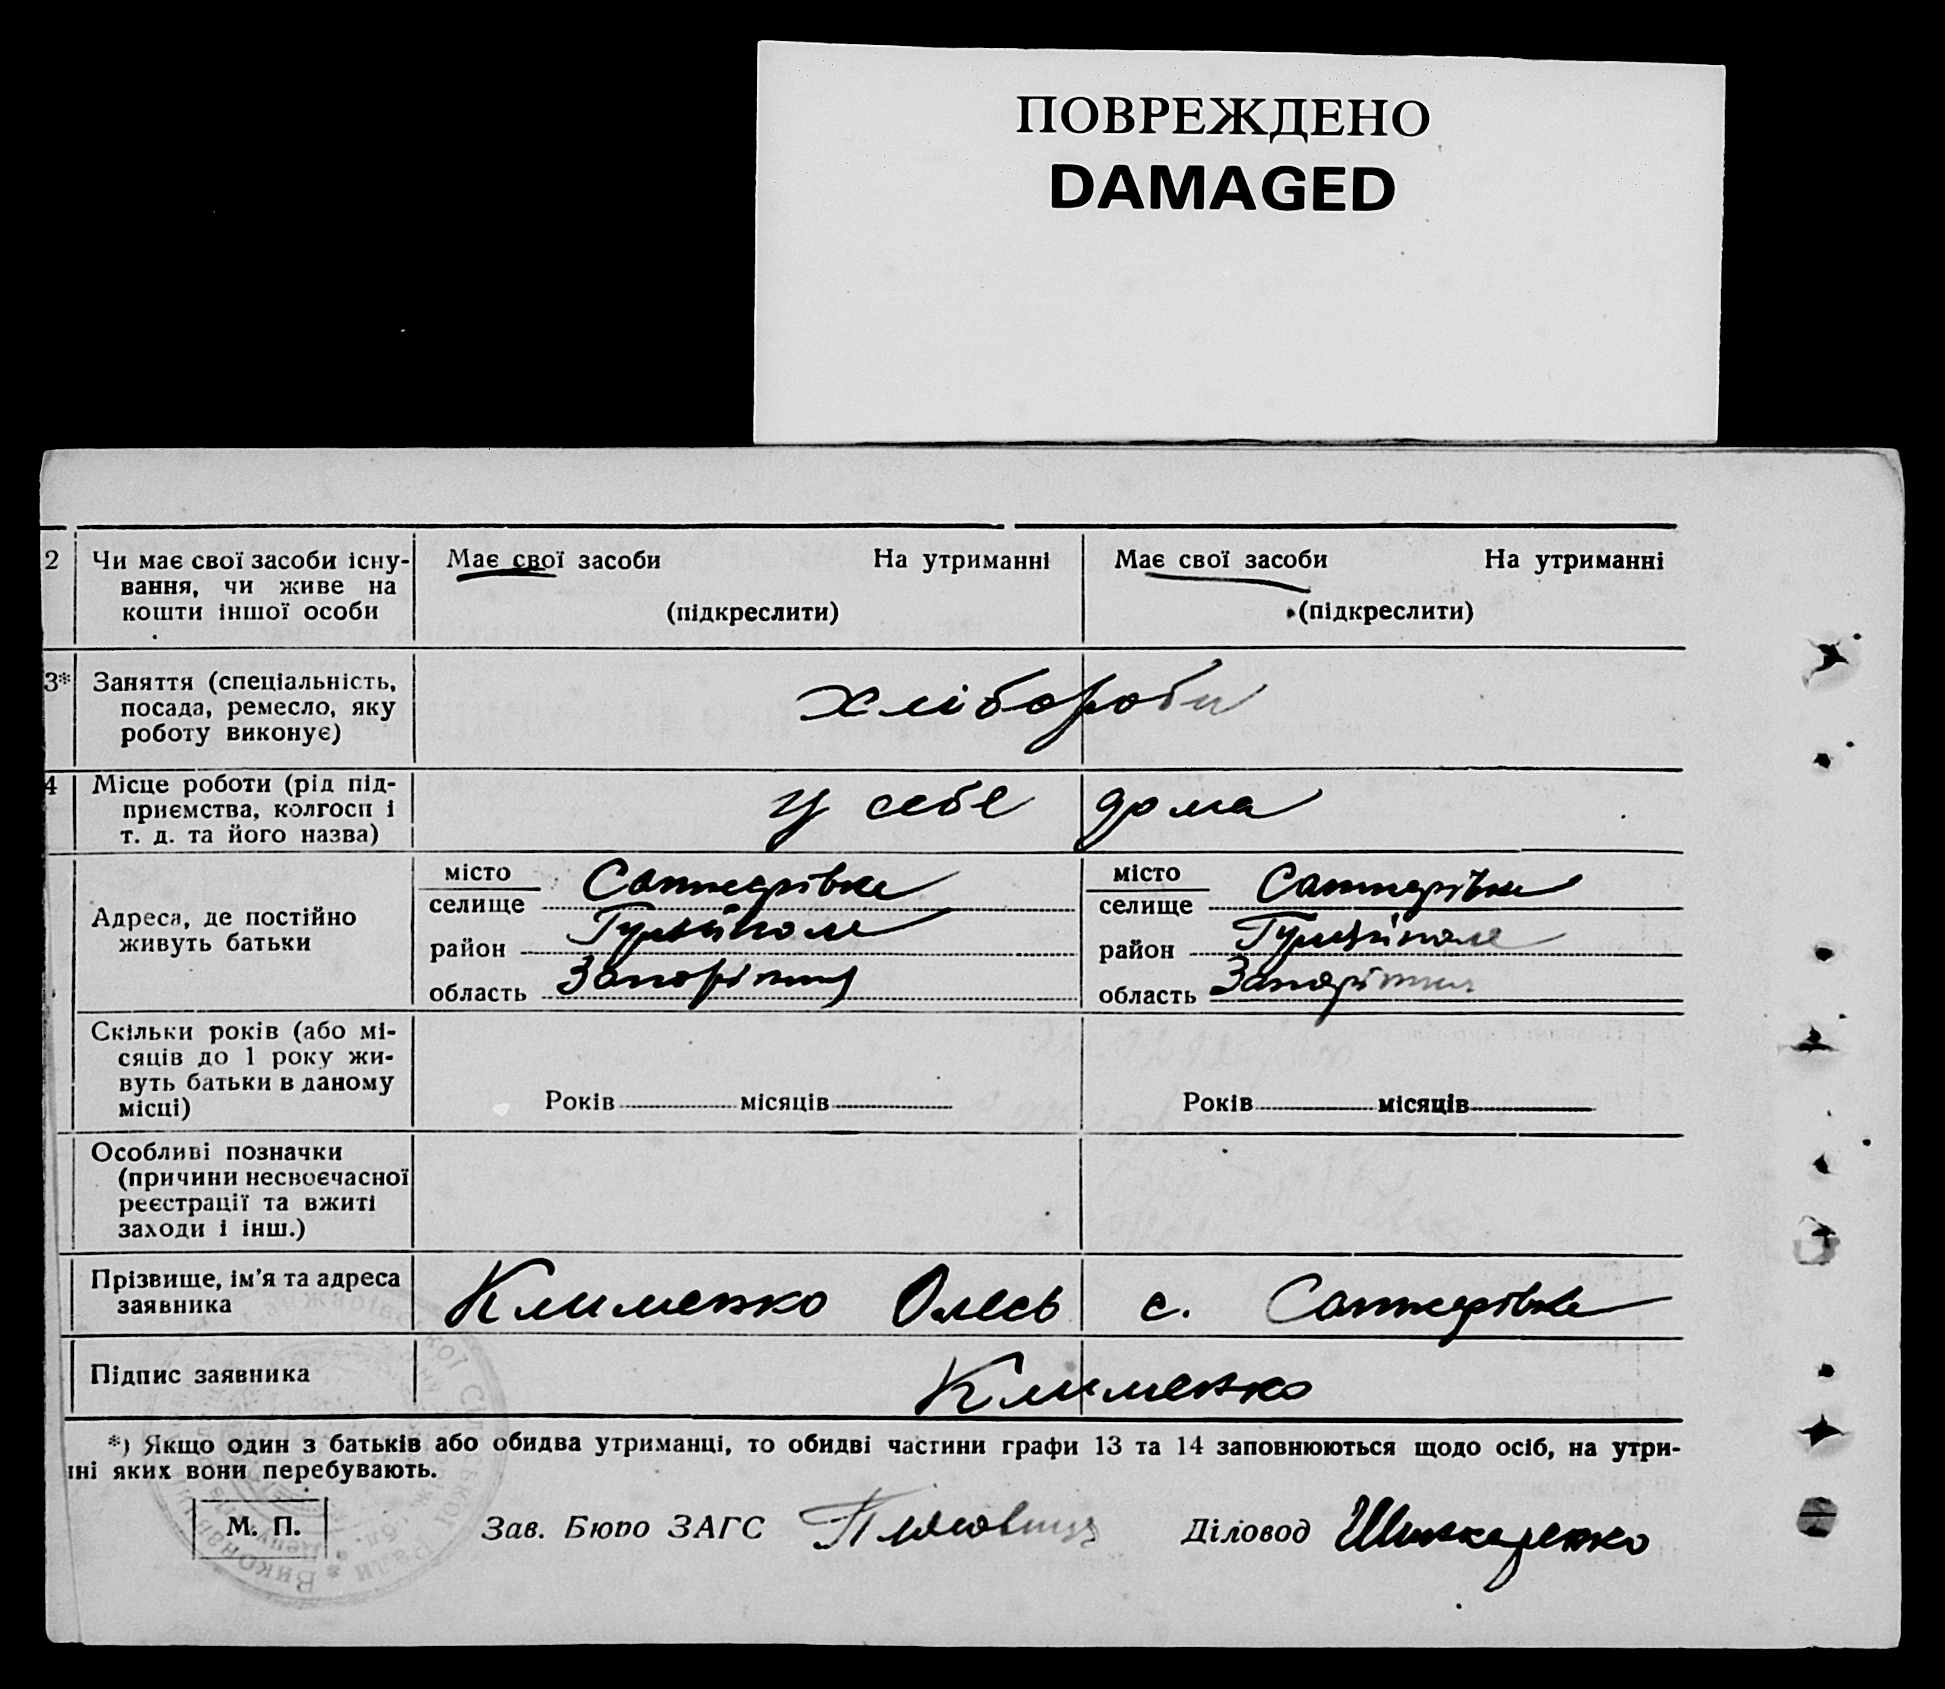 ПОВРЕЖДЕНО
DAMAGED
2 Чи має свої засоби існу-
вання, чи живе на
кошти іншої особи
Має свої засоби На утриманні
(підкреслити)
Має свої засоби На утриманні
(підкреслити)
3* Заняття (спеціальність,
посада, ремесло, яку
роботу виконує)
хлібороби
4 Місце роботи (рід під-
приємства, колгосп і
т. д. та його назва)
у себе дома
Адреса, де постійно
живуть батьки
місто
селище Санжарівка
район Гуляйполе
область
місто
селище Санжарівка
район Гуляйполе
область
Скільки років (або мі-
сяців до 1 року жи-
вуть батьки в даному
місці)
Років місяців
Років місяців
Особливі позначки
(причини несвоєчасної
реєстрації та вжиті
заходи і інш.)
Прізвище, ім'я та адреса
заявника
Клименко Олесь с. Санжарівка
Підпис заявника
Клименко
*) Якщо один з батьків або обидва утриманці, то обидві частини графи 13 та 14 заповнюються щодо осіб, на утри-
нні яких вони перебувають.
М. П.
Зав. Бюро ЗАГС
Діловод Шинкаренко